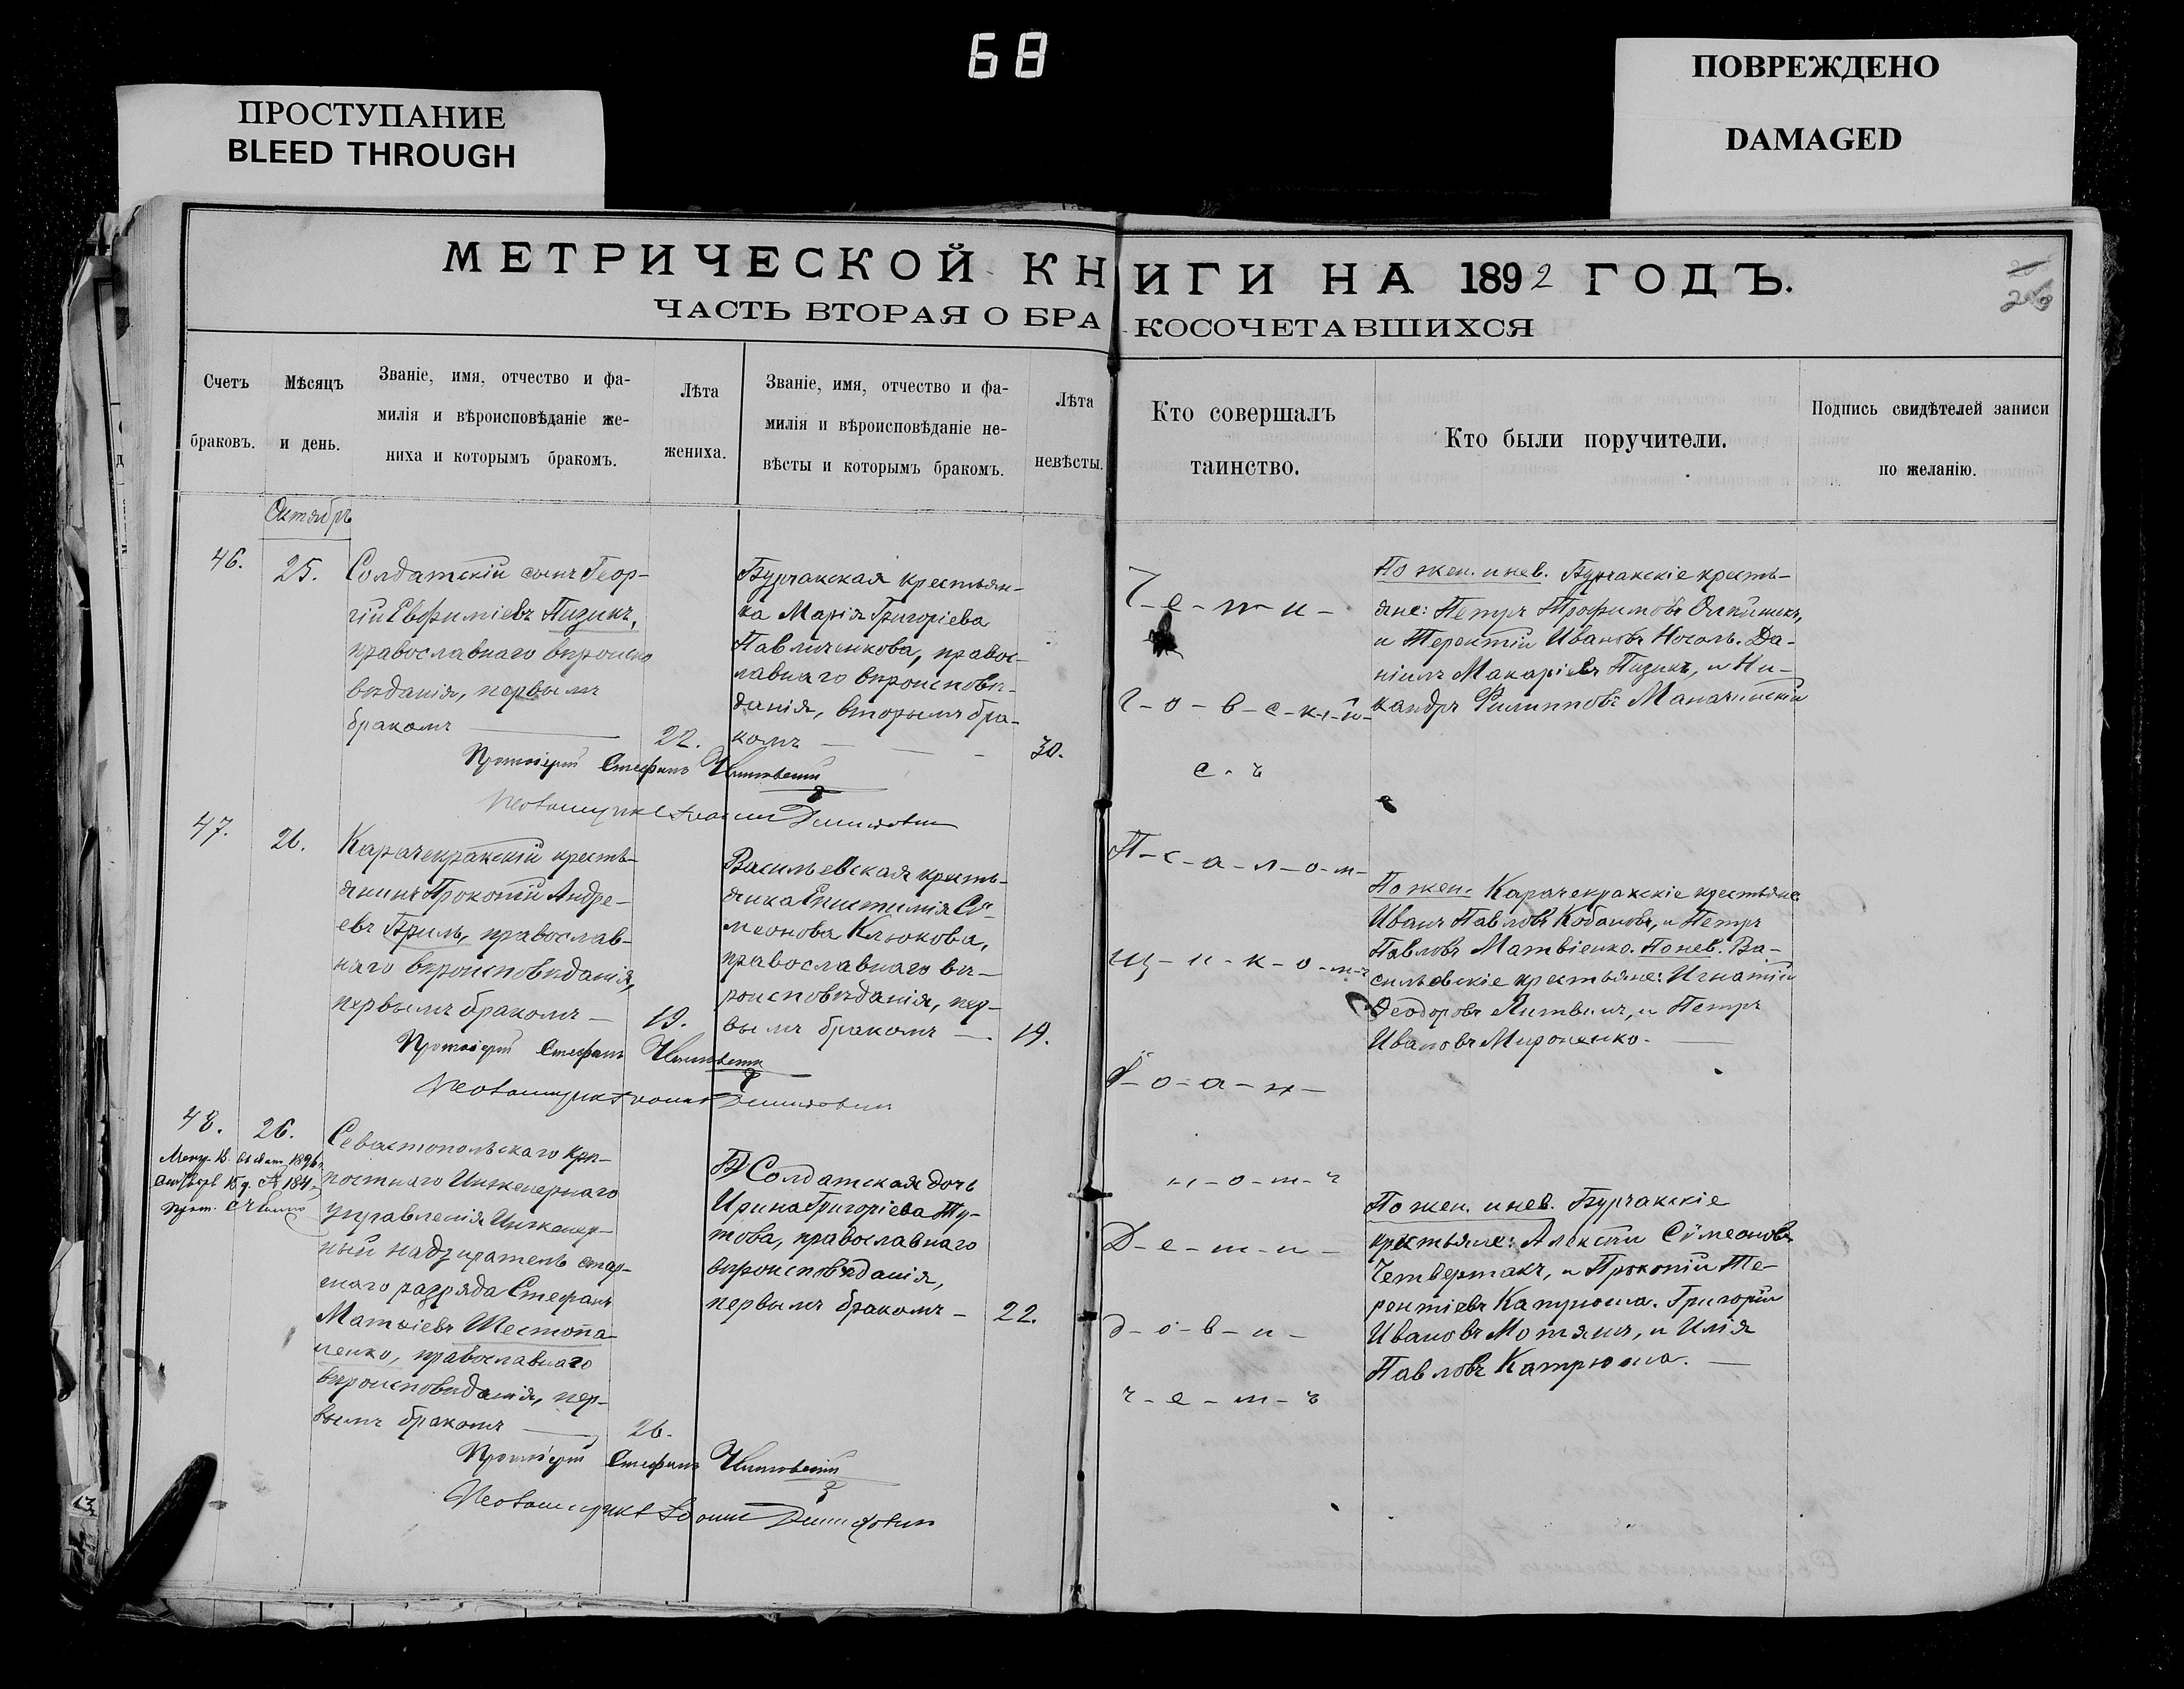 68
ПРОСТУПАНИЕ
BLEED THROUGH
ПОВРЕЖДЕНО
DAMAGED
МЕТРИЧЕСКОЙ КНИГИ НА 1892 ГОДЪ.
ЧАСТЬ ВТОРАЯ О БРАКОСОЧЕТАВШИХСЯ
26
Счетъ
браковъ.
Мѣсяцъ
и день.
Званіе, имя, отчество и фа-
милія и вѣроисповѣданіе же-
ниха и которымъ бракомъ.
Лѣта
жениха.
Званіе, имя, отчество и фа-
милія и вѣроисповѣданіе не-
вѣсты и которымъ бракомъ.
Лѣта
невѣсты.
Кто совершалъ
таинство.
Кто были поручители.
Подпись свидѣтелей записи
по желанію.
Октябрь
46.
25.
Солдатскій сынъ Геор-
гій Евфиміевъ Пизикъ,
православнаго вѣроиспо
вѣданія, первымъ
бракомъ
22.
Бурчакская крестьян-
ка Марія Григоріева
Павличенкова, правос-
лавнаго вѣроисповѣ-
данія, вторымъ бра-
комъ
30.
Протоіерей Стефанъ
Псаломщикъ Іоаннъ
По жен. и нев. Бурчакскіе кресть-
яне: Петръ Трофимовъ
и Терентій Ивановъ Ноголь. Да-
ніилъ Макаріевъ Пизикъ, и Ни-
кандръ Филипповъ
47.
26.
Карачекракскій кресть-
янинъ Прокопій Андре-
евъ Бриль, православ-
наго вѣроисповѣданія,
первымъ бракомъ
19.
Васильевская кресть-
янка Епистимія Сѵ-
меонова Клюкова,
православнаго вѣ-
роисповѣданія, пер-
вымъ бракомъ
19.
Протоіерей Стефанъ
Псаломщикъ Іоаннъ
По жен. Карачекракскіе крестьяне
Иванъ Павловъ Кобановъ, и Петръ
Павловъ Матвіенко. По нев. Ва-
сильевскіе крестьяне: Игнатій
Ѳеодоровъ Литвинъ, и Петръ
Ивановъ Мироненко.
48.
26.
Севастопольскаго крѣ-
постнаго Инженернаго
управленія Инженер-
ный надзиратель стар-
шаго разряда Стефанъ
Матѳіевъ Шестопа-
ленко, православнаго
вѣроисповѣданія, пер-
вымъ бракомъ
26.
Солдатская дочь
Ирина Григоріева Ту-
това, православнаго
вѣроисповѣданія,
первымъ бракомъ
22.
Протоіерей Стефанъ
Псаломщикъ Іоаннъ
По жен. и нев. Бурчакскіе
крестьяне: Алексій Сѵмеоновъ
Четвертакъ, и Прокопій Те-
рентіевъ Катрюша. Григорій
Ивановъ Мотянъ, и Илія
Павловъ Катрюша.
г-о-в-с-к-і-й-
с-ъ
П-с-а-л-о-м-
щ-и-к-о-м-ъ
І-о-а-н-
н-о-м-ъ
Д-е-м-и-
д-о-в-и-
ч-е-м-ъ